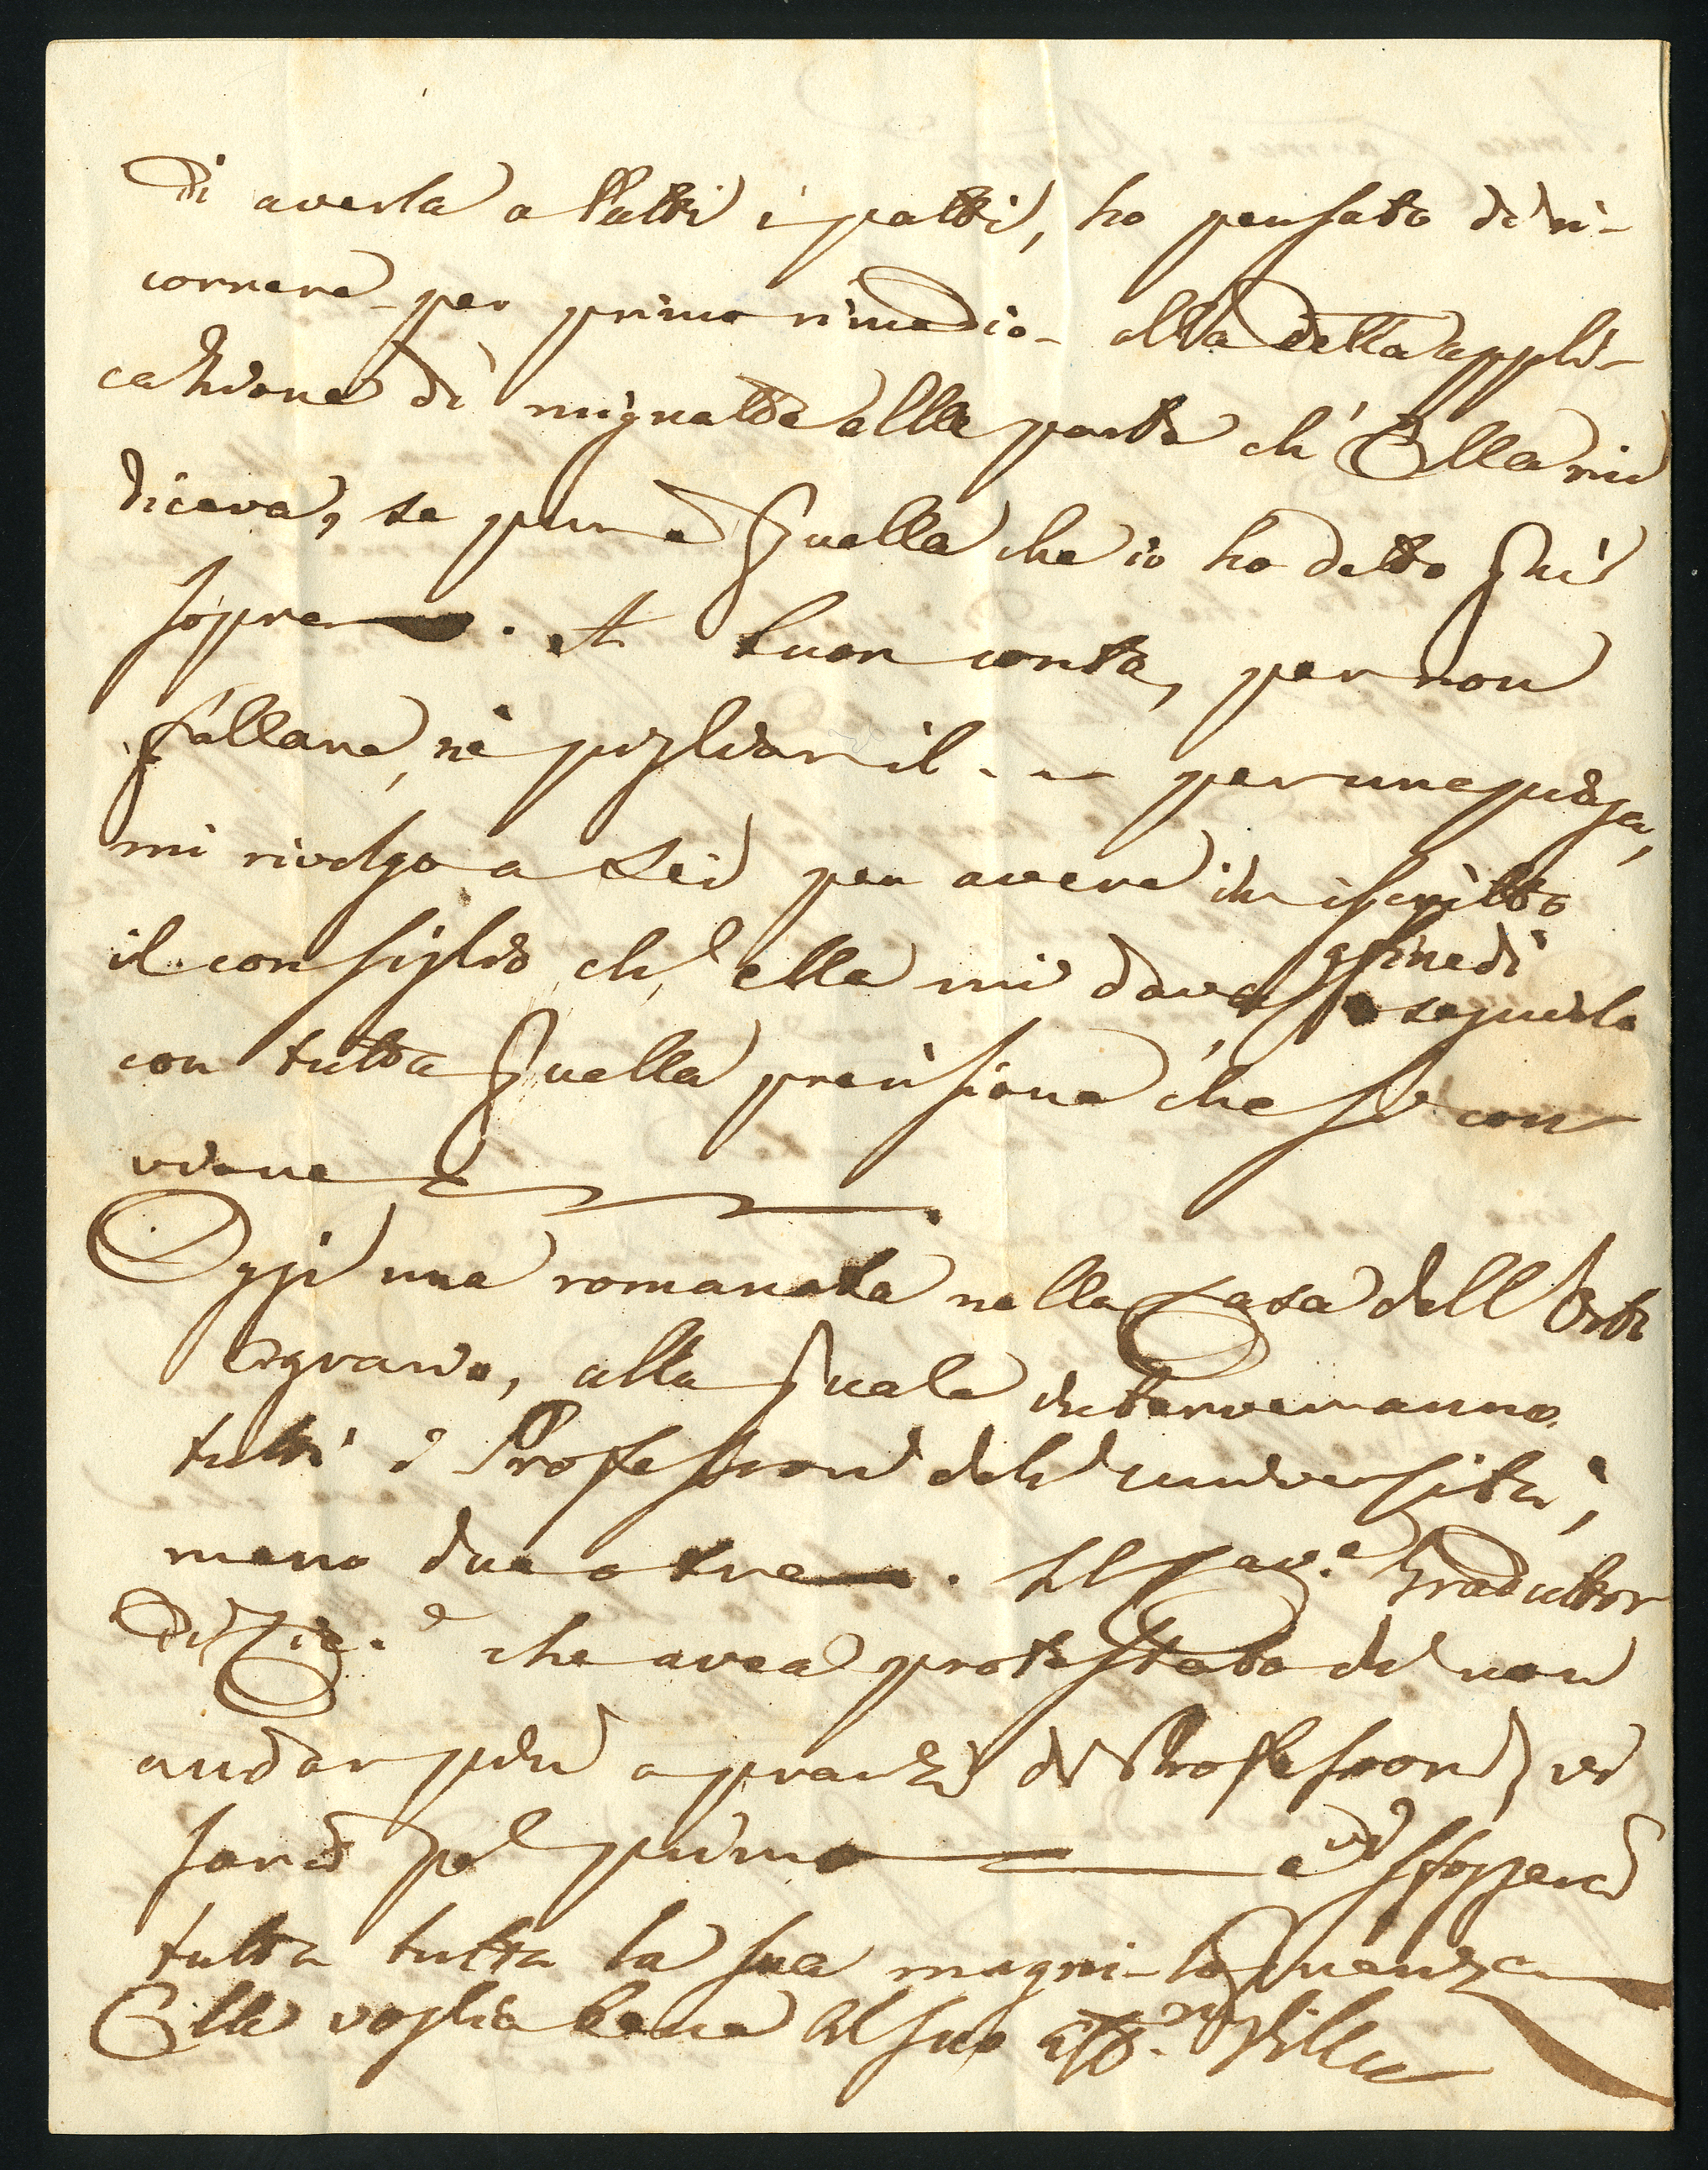 di averla a tutti i patti, ho pensato di ri-
correre per primo rimedio - alla detta appli-
cazione di mignatte alla parte ch' Ella mi
diceva, se pure è quella che io ho detto quì
sopra. A buon conto, per non
fallare, nè pigliar il - - per una piaga,
mi rivolgo a Lei per avere in iscritto
il consiglio ch' ella mi dava, affine di
seguirlo
con tutta quella precisione che si con
viene
Oggi una romanata nella Casa dell' Orto
Agrario, alla quale interverranno
tutti i Professori dell' università,
meno due o tre. Il Cav.e Traduttor
di che avea protestato di non
andar più a pranzi di Professori, vi
sarà pel primo e vi sfoggerà
tutta tutta la sua magni-loquenza
Ella voglia bene al suo aff.mo